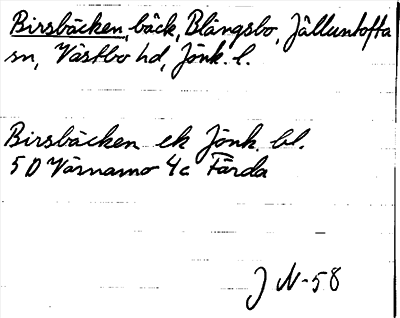 Birsbäcken, bäck, Blängsbo, Jälluntofta
sn, Västbo hd, Jönk. l.
Birsbäcken ek Jönk. bl.
5 D Värnamo 4c Färda
J N-58